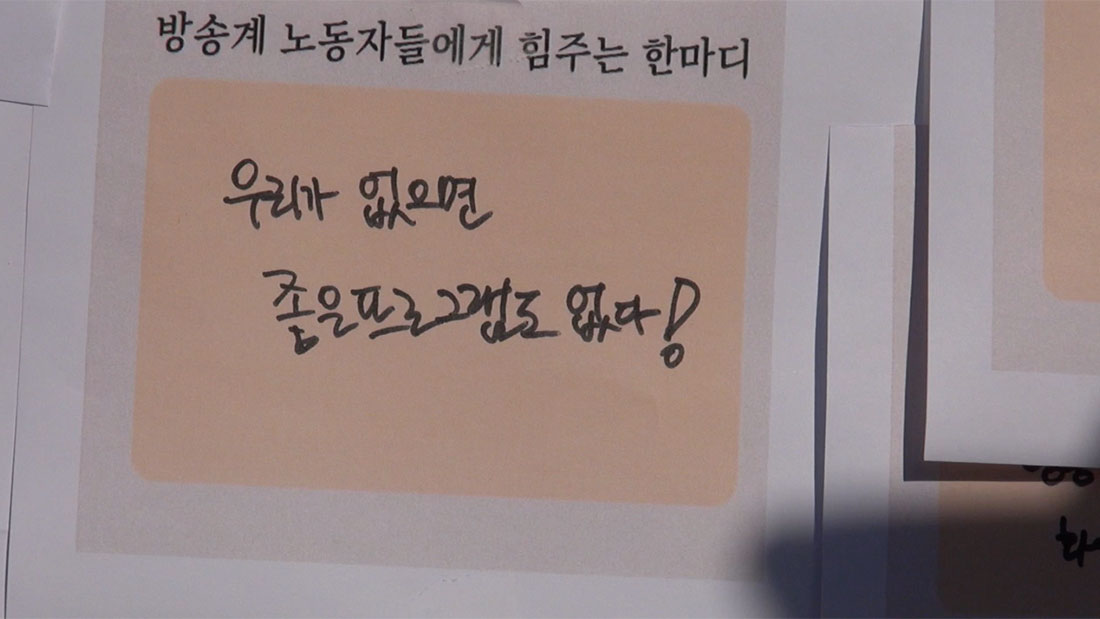 방송계 노동자들에게 힘주는 한마디
우리가 없으면
좋은프로그램도 없다!